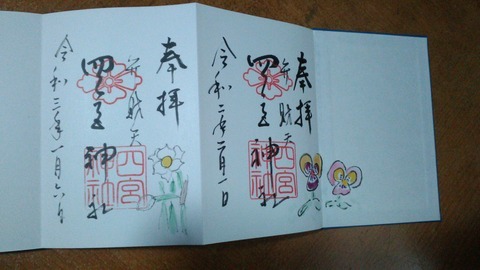 奉拝
弁財天
四宮神社
四宮神社
令和二年二月一日
奉拝
弁財天
四宮神社
四宮神社
令和三年一月六日